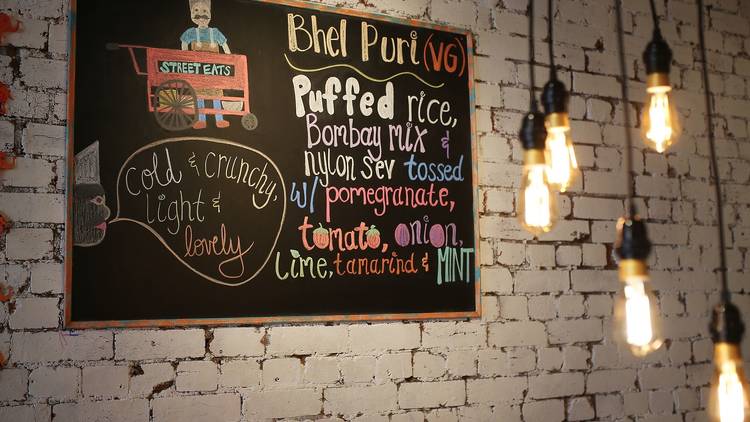 STREET EATS
cold & crunchy,
light &
lovely
Bhel Puri (VG)
Puffed rice,
Bombay mix &
nylon sev tossed
w/ pomegranate,
tomato, onion,
Lime, tamarind & MINT